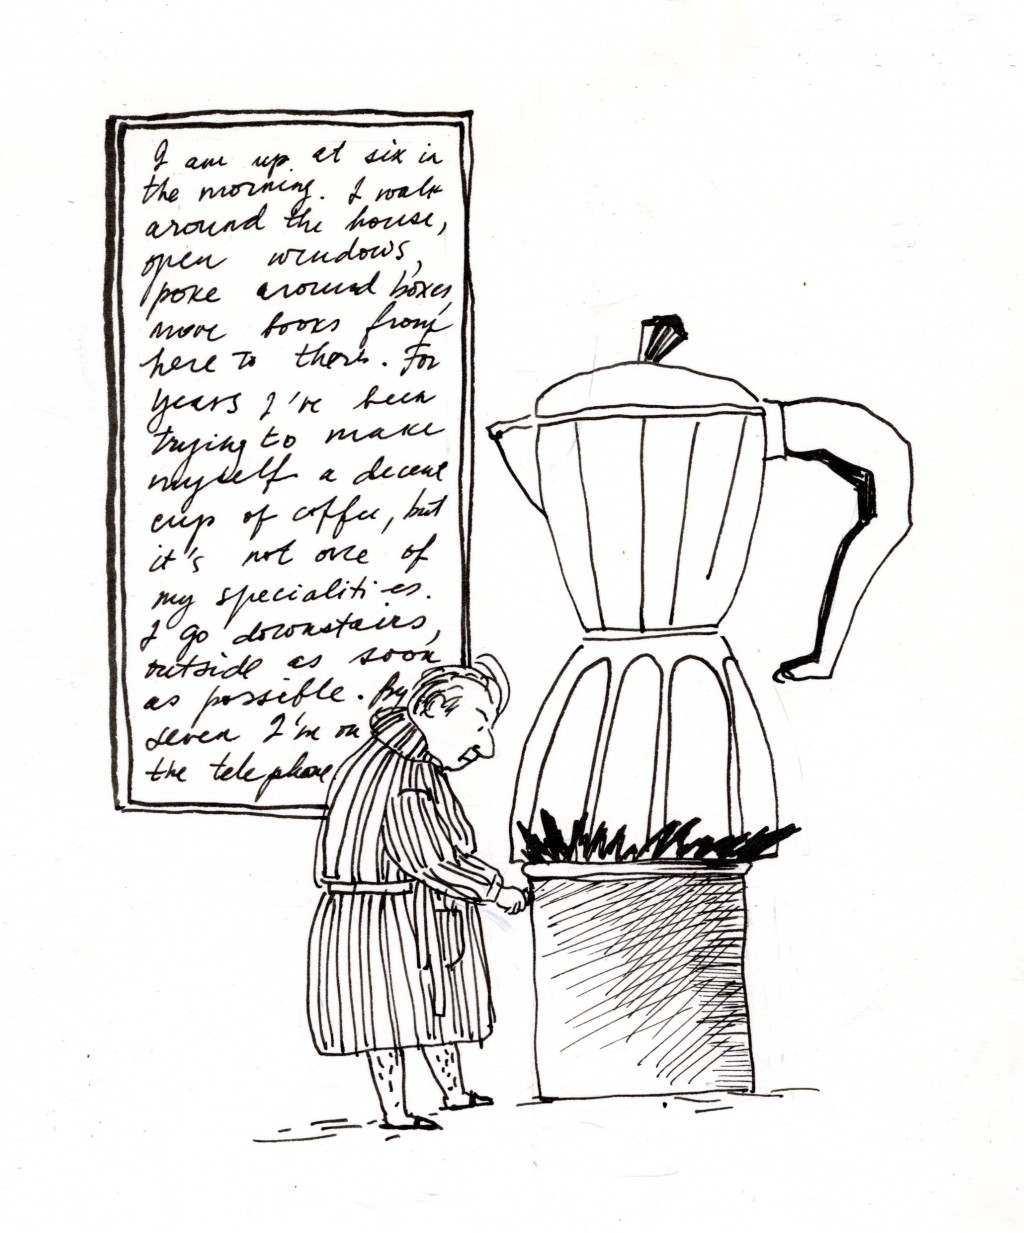 I am up at six in
the morning. I walk
around the house,
open windows,
poke around boxes,
move books from
here to there. For
years I've been
trying to make
myself a decent
cup of coffee, but
it's not one of
my specialities.
I go downstairs,
outside as soon
as possible. By
seven I'm on
the telephone